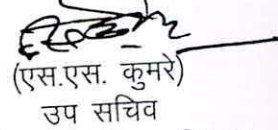 (एस.एस. कुमरे)
उप सचिव